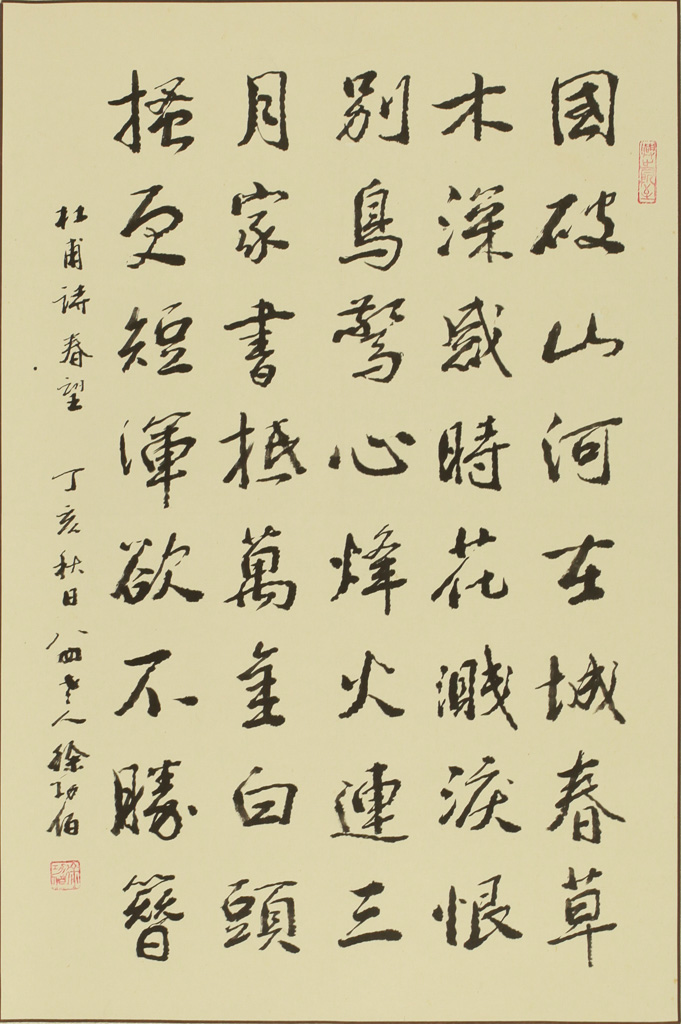 國破山河在城春草
木深感時花濺淚恨
別鳥驚心烽火連三
月家書抵萬金白頭
搔更短渾欲不勝簪
杜甫詩春望 丁亥秋日 八四老人徐功伯